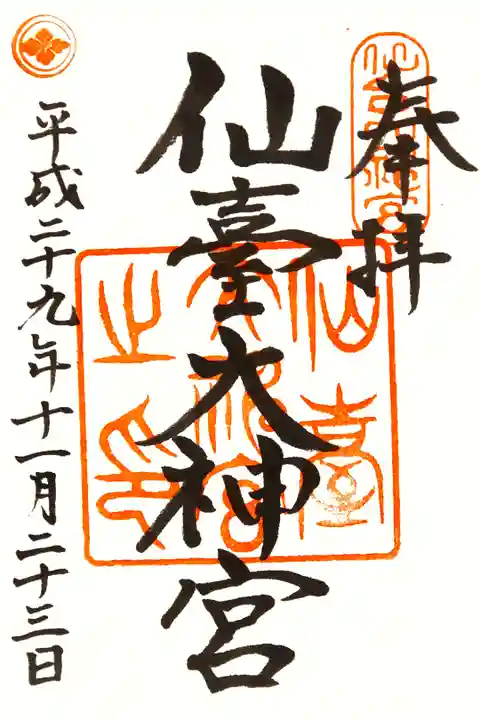 奉拝
仙臺大神宮
仙臺大神宮之印
平成二十九年十一月二十三日